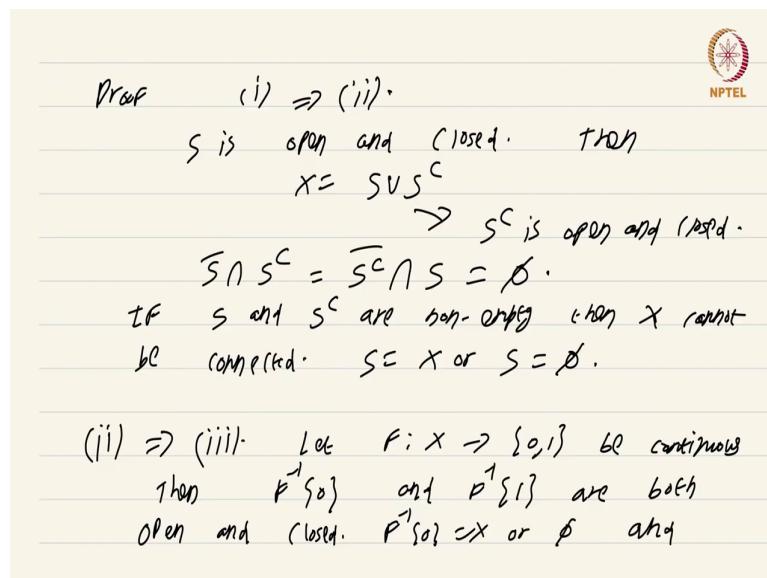 NPTEL
Proof (i) => (ii).
S is open and closed. Then
X = S ∪ S^C
→ S^C is open and closed.
S̅ ∩ S^C = \overline{S^C} ∩ S = ∅.
If S and S^C are non-empty then X cannot
be connected. S = X or S = ∅.
(ii) => (iii). Let F: X → {0,1} be continuous
Then F^{-1}{0} and F^{-1}{1} are both
open and closed. F^{-1}{0} = X or ∅ and